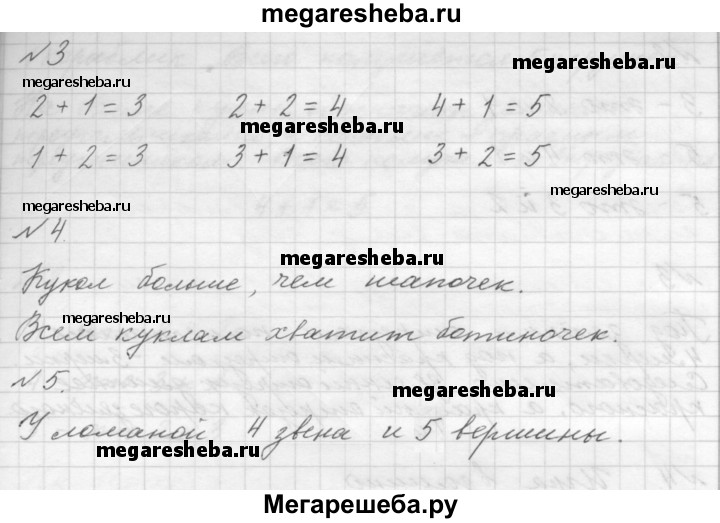 megaresheba.ru
№3
megaresheba.ru
megaresheba.ru
2 + 1 = 3 2 + 2 = 4 4 + 1 = 5
megaresheba.ru
1 + 2 = 3 3 + 1 = 4 3 + 2 = 5
megaresheba.ru
megaresheba.ru
№4.
megaresheba.ru
Кукол больше, чем шапочек.
megaresheba.ru
Всем куклам хватит ботиночек.
№5.
megaresheba.ru
У ломаной 4 звена и 5 вершины.
megaresheba.ru
Мегарешеба.ру